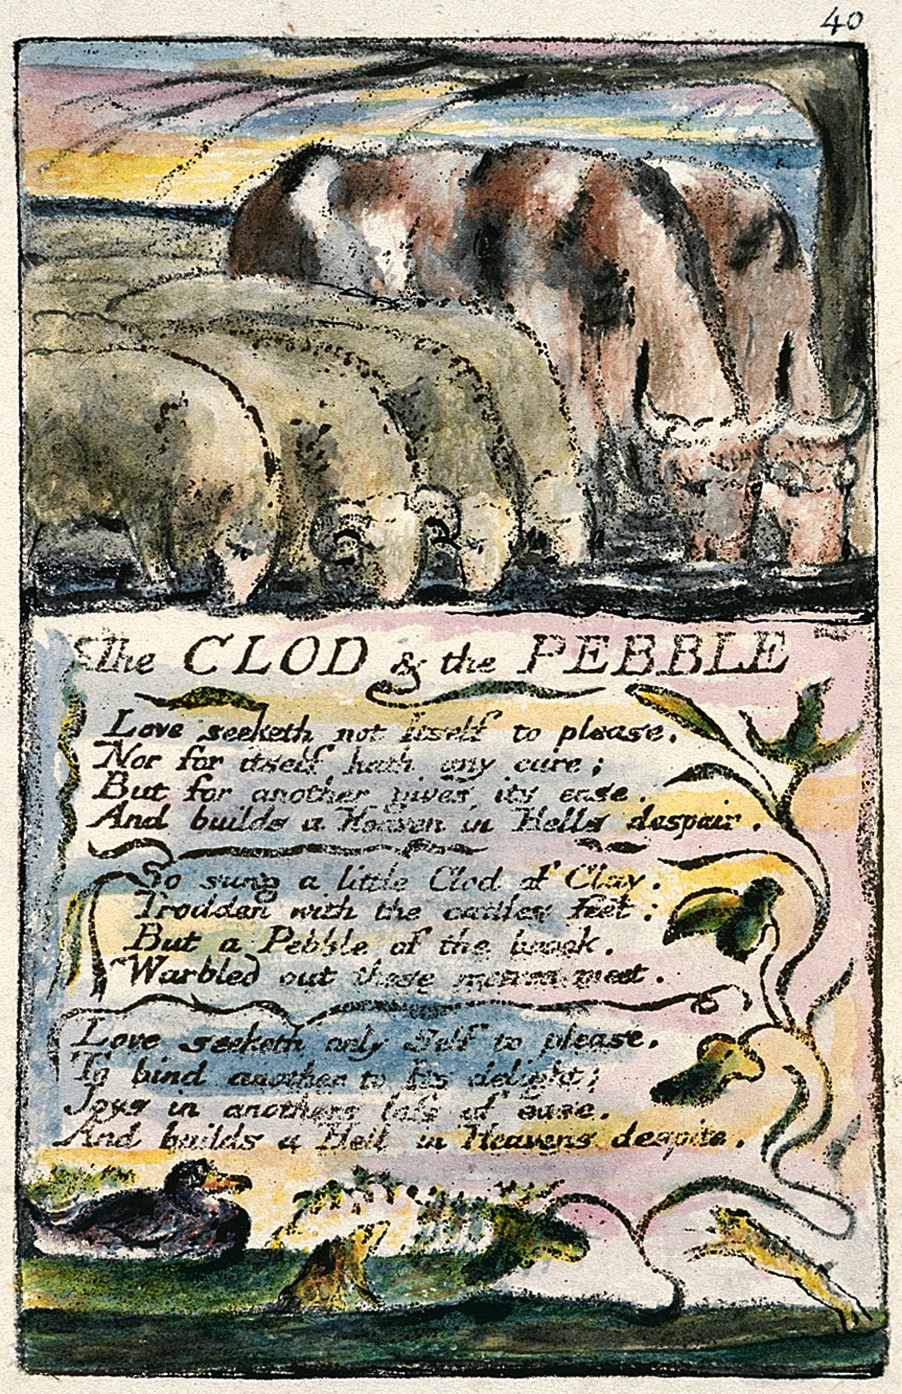 40
The CLOD & the PEBBLE
Love seeketh not Itself to please,
Nor for itself hath any care;
But for another gives its ease,
And builds a Heaven in Hells despair.
So sung a little Clod of Clay,
Trodden with the cattles feet:
But a Pebble of the brook,
Warbled out these metres meet.
Love seeketh only Self to please,
To bind another to Its delight;
Joys in anothers loss of ease,
And builds a Hell in Heavens despite.